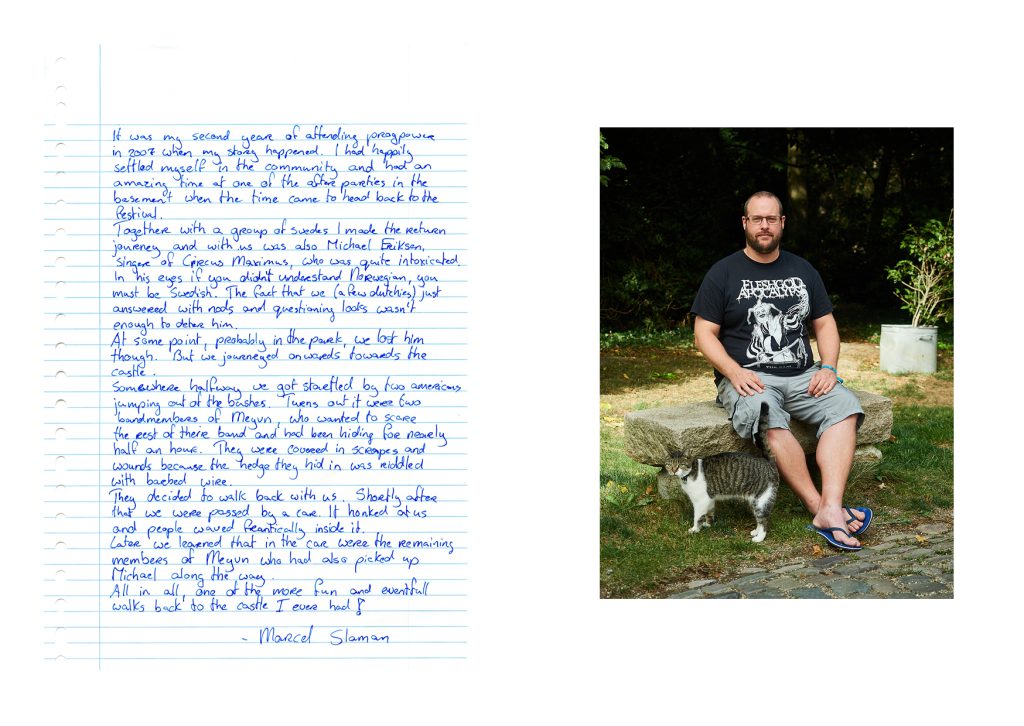 It was my second yeare of attending progpower
in 2007 when my story happened. I had happily
settled myself in the community and had an
amazing time at one of the after parties in the
basement when the time came to head back to the
festival.
Together with a group of swedes I made the return
journey and with us was also Michael Eriksen,
singer of Circus Maximus, who was quite intoxicated.
In his eyes if you didn't understand Norwegian, you
must be Swedish. The fact that we (a few dutchies) just
answered with nods and questioning looks wasn't
enough to deter him.
At some point, probably in the park, we lost him
though. But we journeyed onwards towards the
castle.
Somewhere halfway we got startled by two americans
jumping out of the bushes. Turns out it were two
bandmembers of Meyun, who wanted to scare
the rest of their band and had been hiding for nearly
half an hour. They were covered in scrapes and
wounds because the hedge they hid in was riddled
with barbed wire.
They decided to walk back with us. Shortly after
that we were passed by a car. It honked at us
and people waved frantically inside it.
Later we learned that in the car were the remaining
members of Meyun who had also picked up
Michael along the way.
All in all, one of the more fun and eventfull
walks back to the castle I ever had!
- Marcel Slaman
FLESHGOD
APOCALYPSE